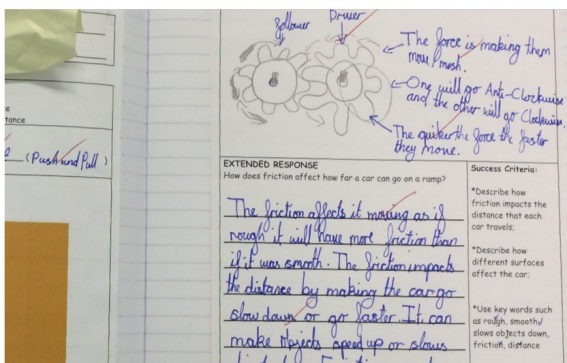 Follower
Driver
The force is making them
move/mesh.
One will go Anti-Clockwise
and the other will go Clockwise.
The quicker the force the faster
they move.
e
tance
(Push and Pull)
EXTENDED RESPONSE
How does friction affect how far a car can go on a ramp?
The friction affects it moving as if
rough it will have more friction than
if it was smooth. The friction impacts
the distance by making the car go
slow down or go faster. It can
make objects speed up or slows
Success Criteria:
*Describe how
friction impacts the
distance that each
car travels;
*Describe how
different surfaces
affect the car;
*Use key words such
as rough, smooth,
slows objects down,
friction, distance